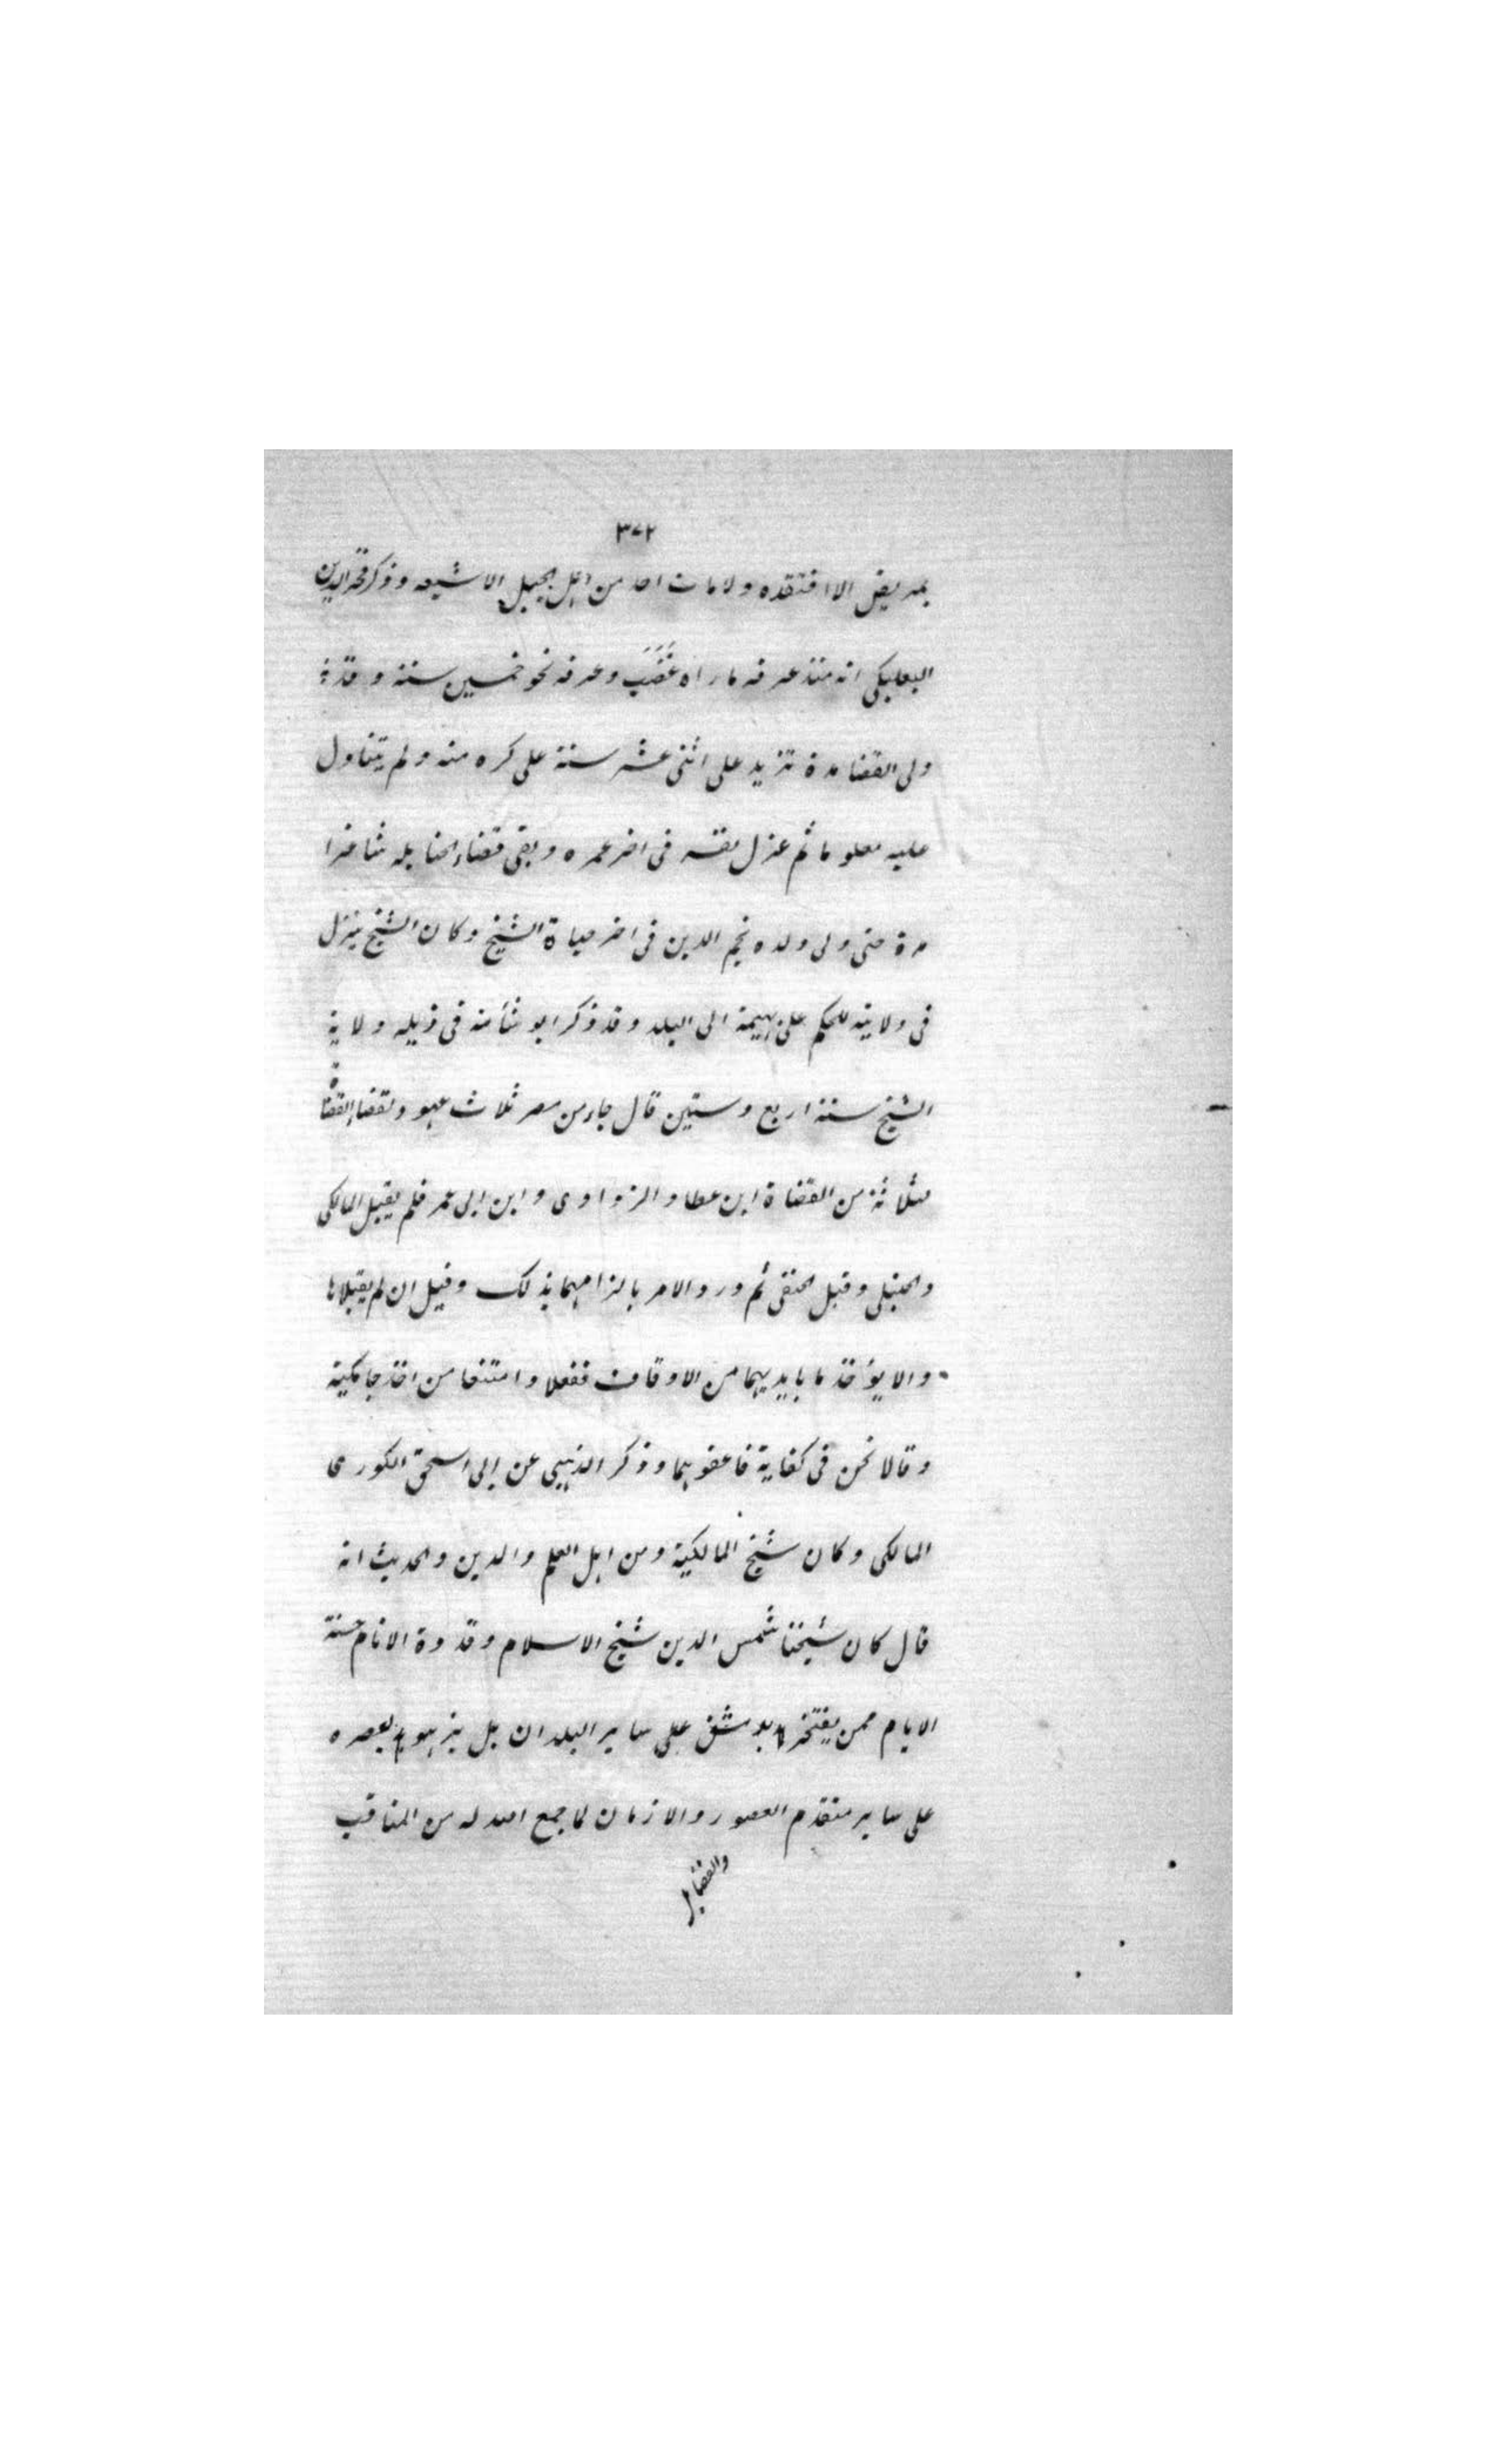 ٣٧٢
بمريض الا افتقده ولا مات احد من اهل الجبل الا شيعه وذكر فخر الدين
البعلبكى انه منذ عرفه ما راه غَضَبَ وعرفه نحو خمسين سنة وقد
ولى القضا مدة تزيد على اثنى عشر سنة على كره منه ولم يتناول
عليه معلوما ثم عزل نفسه فى اخر عمره وبقى قضاء الحنابله شاغرا
مدة حتى ولى ولده نجم الدين فى اخر حياة الشيخ وكان الشيخ ينزل
فى ولايته للحكم على بهيمة الى البلد وقد ذكر ابو شامة فى ذيله ولاية
الشيخ سنة اربع وستين قال جاء من مصر ثلاث عهود لقضا القضاة
لثلاثة من القضاة ابن عطا والزواوى وابن ابى عمر فلم يقبل المالكى
والحنبلى وقبل الحنفى ثم ورد الامر بالزامهما بذلك وقيل ان لم يقبلاها
والا يؤخذ ما بايديهما من الاوقاف ففعلا وامتنعا من اخذ جامكية
وقالا نحن فى كفاية فاعفوهما وذكر الذهبى عن ابى اسحق الكورى
المالكى وكان شيخ المالكية ومن اهل العلم والدين والحديث انه
قال كان شيخنا شمس الدين شيخ الاسلام وقدوة الانام حسنة
الايام ممن يفتخر به دمشق على ساير البلدان بل يزهو به عصره
على ساير متقدم العصور والازمان لما جمع الله له من المناقب
والفضايل